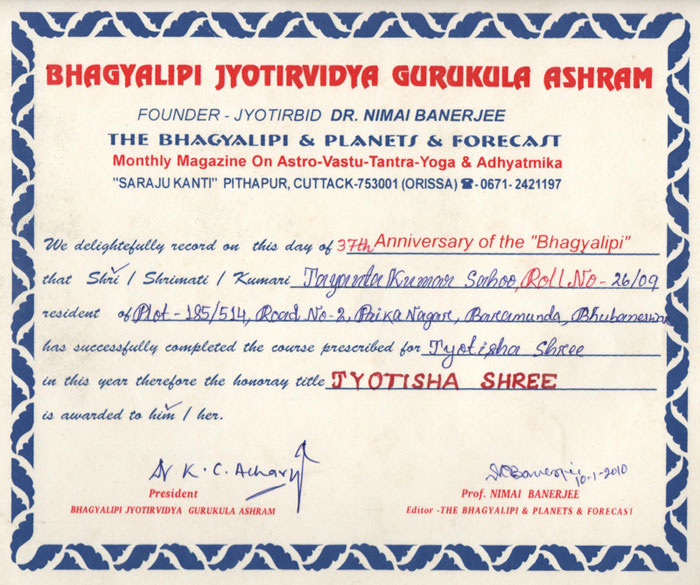 BHAGYALIPI JYOTIRVIDYA GURUKULA ASHRAM
FOUNDER - JYOTIRBID DR. NIMAI BANERJEE
THE BHAGYALIPI & PLANETS & FORECAST
Monthly Magazine On Astro-Vastu-Tantra-Yoga & Adhyatmika
"SARAJU KANTI" PITHAPUR, CUTTACK-753001 (ORISSA) ☎-0671- 2421197
We delightefully record on this day of 37th Anniversary of the "Bhagyalipi"
that Shri / Shrimati / Kumari Jayanta Kumar Sahoo, Roll No - 26/09
resident of Plot-185/514, Road No-2, Paika Nagar, Baramunda, Bhubaneswar
has successfully completed the course prescribed for Jyotisha Shree
in this year therefore the honoray title JYOTISHA SHREE
is awarded to him / her.
Dr K. C. Achary
NBanerjee 10-1-2010
President
Prof. NIMAI BANERJEE
BHAGYALIPI JYOTIRVIDYA GURUKULA ASHRAM
Editor -THE BHAGYALIPI & PLANETS & FORECAST